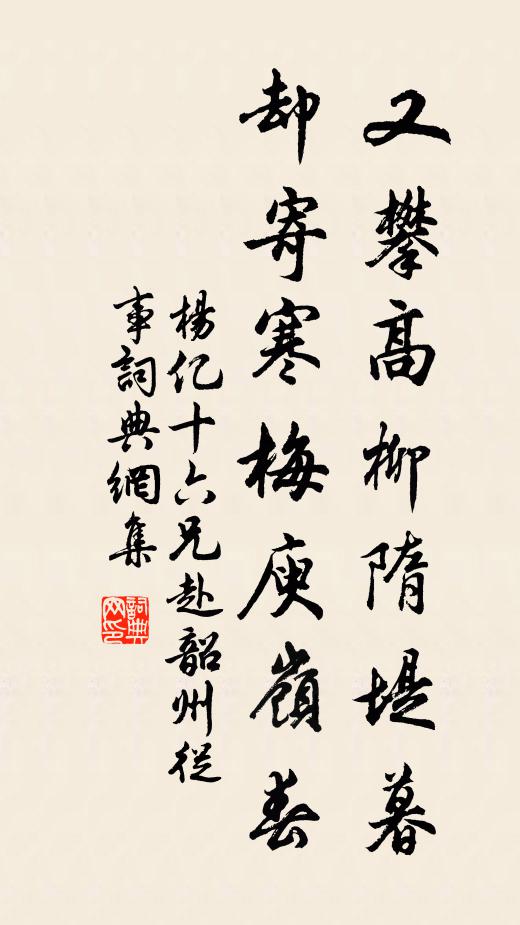 又攀高柳隋堤暮
却寄寒梅庾嶺春
楊亿十六兄赴韶州從
事詞典網集
詞典
网印